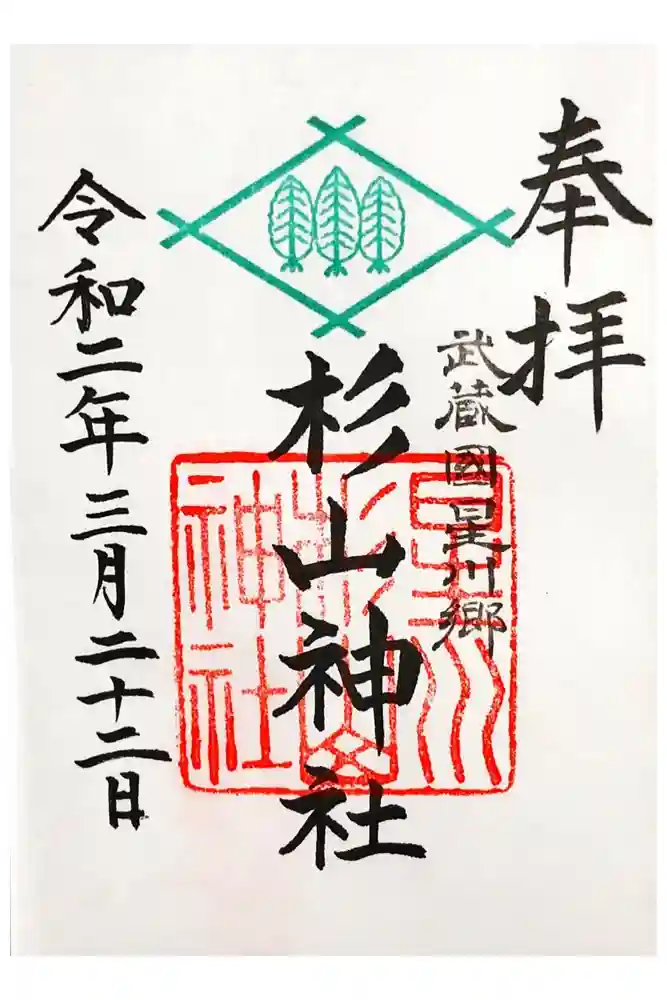 奉拝
武蔵國星川郷
杉山神社
星川
杉山
神社
令和二年三月二十二日